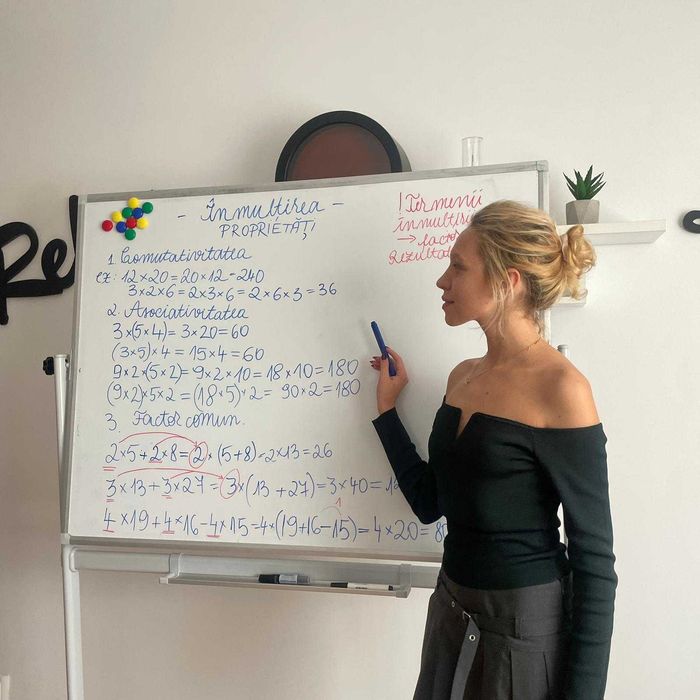 - Înmulțirea -
PROPRIETĂȚI
! Termenii
înmulțirii
→ factor
Rezultat
1. Comutativitatea
ex: 12×20=20×12=240
3×2×6=2×3×6=2×6×3=36
2. Asociativitatea
3×(5×4)=3×20=60
(3×5)×4=15×4=60
9×2×(5×2)=9×2×10=18×10=180
(9×2)×5×2=(18×5)×2= 90×2=180
3. Factor comun.
2×5+2×8=2×(5+8)=2×13=26
3×13+3×27=3×(13+27)=3×40=12
1
4×19+4×16-4×15=4×(19+16-15)=4×20=80
Rel